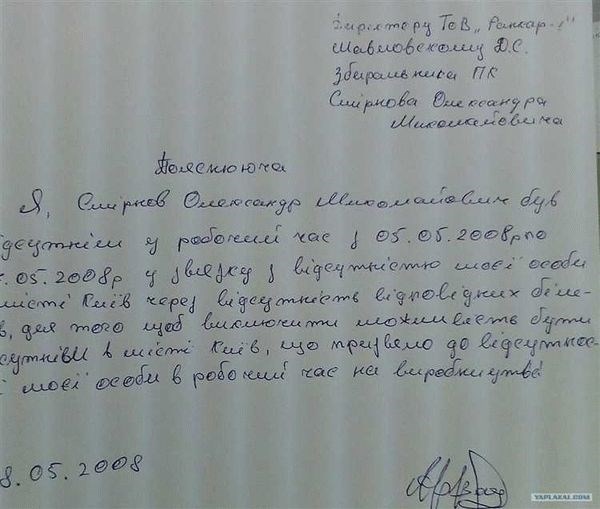 Директору ТоВ „Ранкар-
Шавловскому Д.С.
Збиральника ПК
Смірнова Олександра
Миколайовича
Пояснююча
Я, Смірнов Олександр Миколайович був
ідсутнім у робочий час з 05.05.2008р по
.05.2008р у звязку з відсутністю моєї особи
місті Київ через відсутність відповідних біле-
в, для того щоб виключити можливсть бути
сутнім в місті Київ, що призвело до відсутнос-
і моєї особи в робочий час на виробництві
8.05.2008
YAPLAKAL.COM